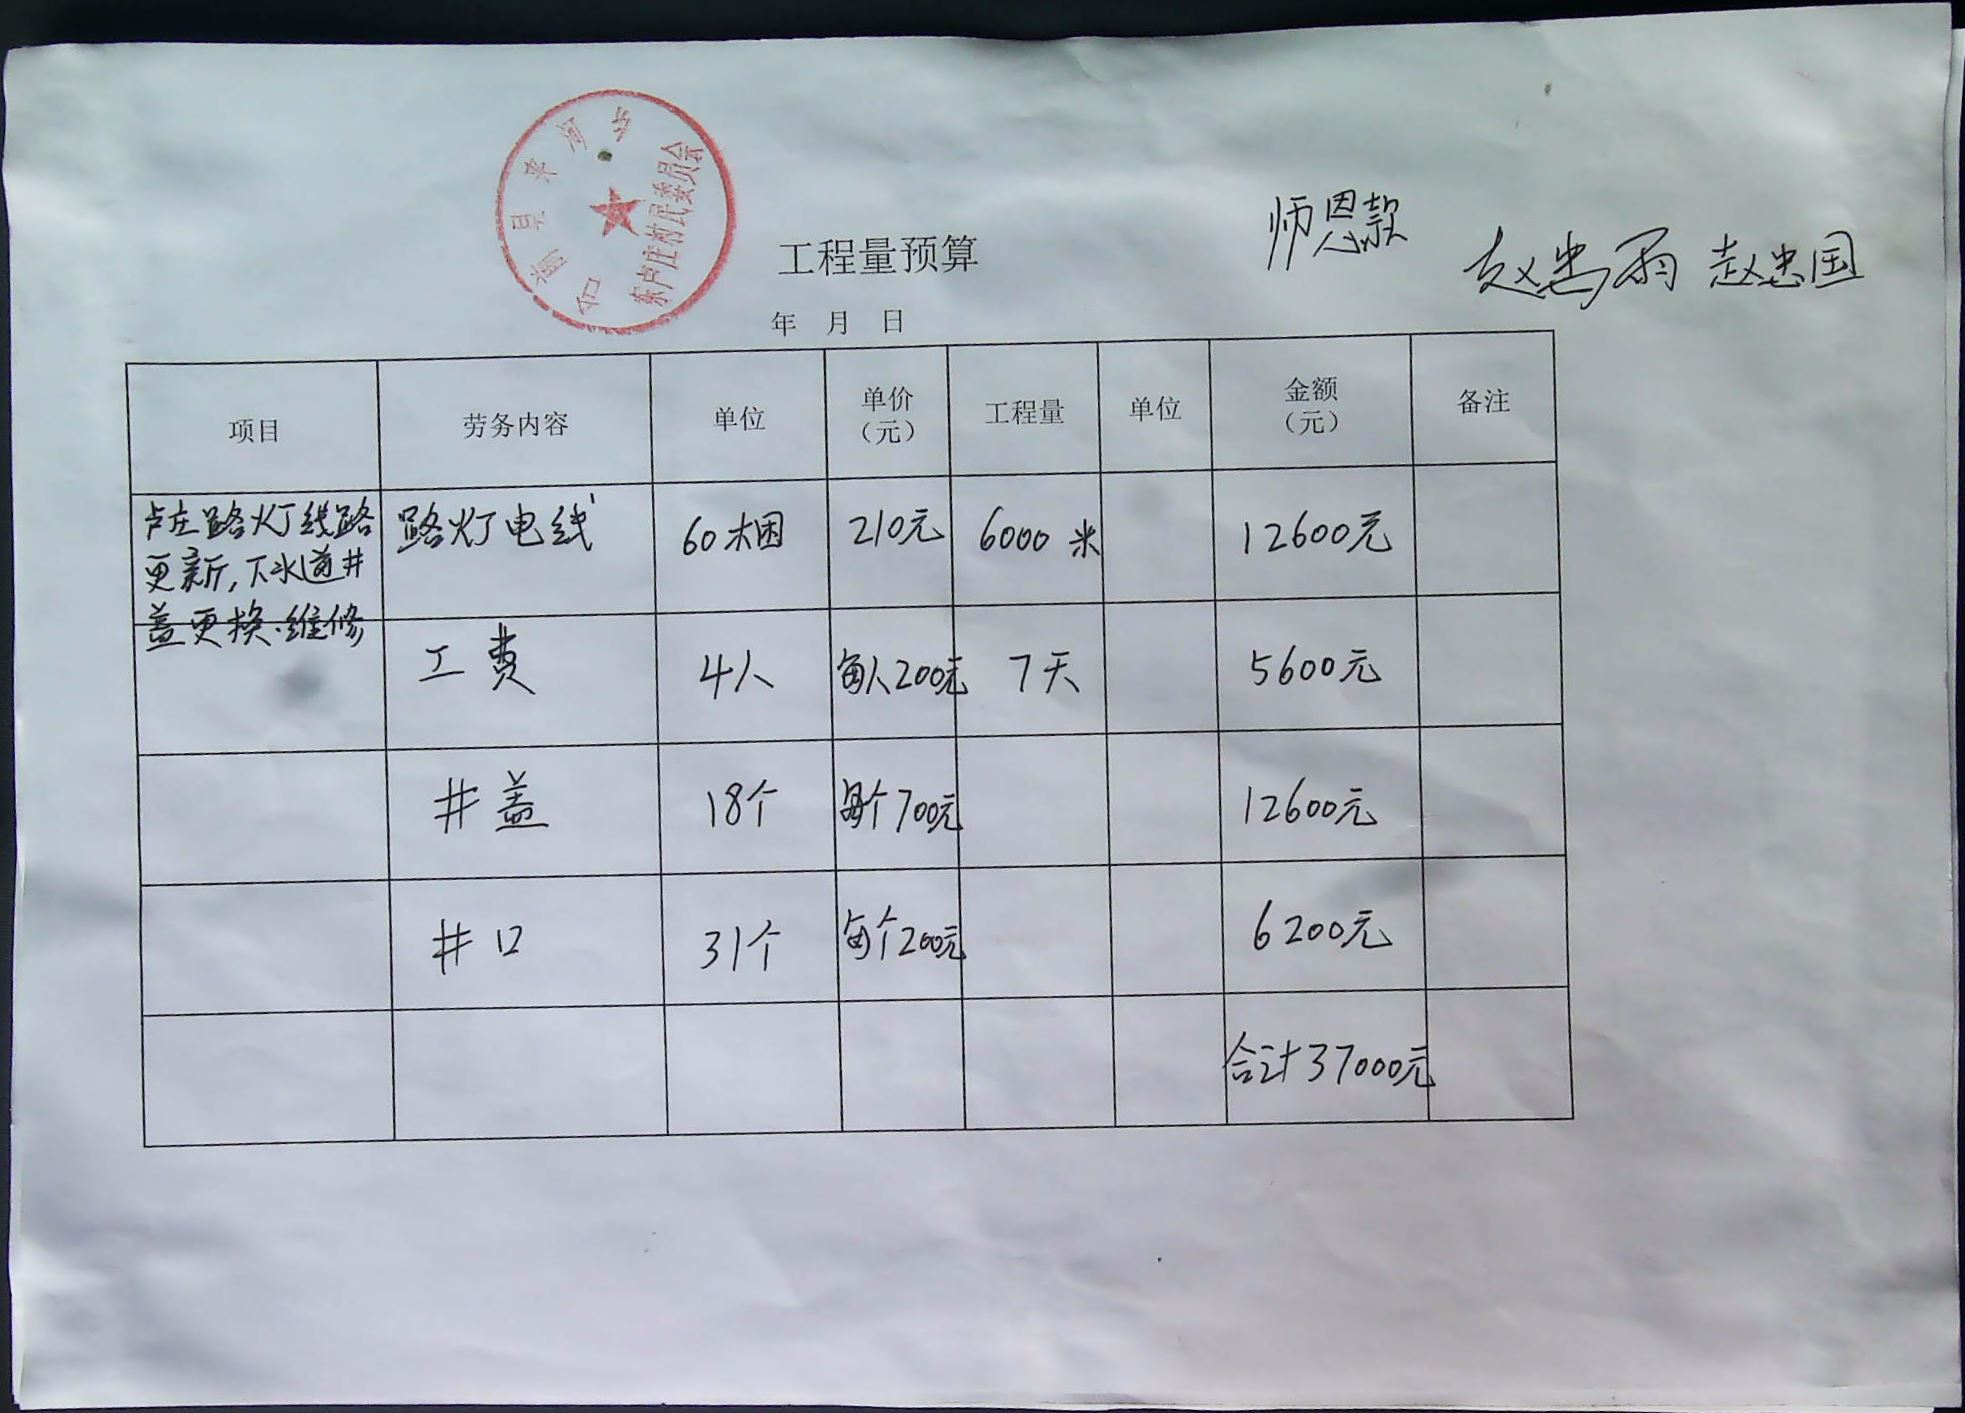 东卢庄村民委员会
工程量预算
师恩款
赵忠国
年 月 日
项目 劳务内容 单位 单价（元） 工程量 单位 金额（元） 备注
卢庄路灯线路
更新,下水道井
盖更换.维修
路灯电线 60捆 210元 6000米 12600元
工费 4人 每人200元 7天 5600元
井盖 18个 每个700元 12600元
井口 31个 每个200元 6200元
合计37000元